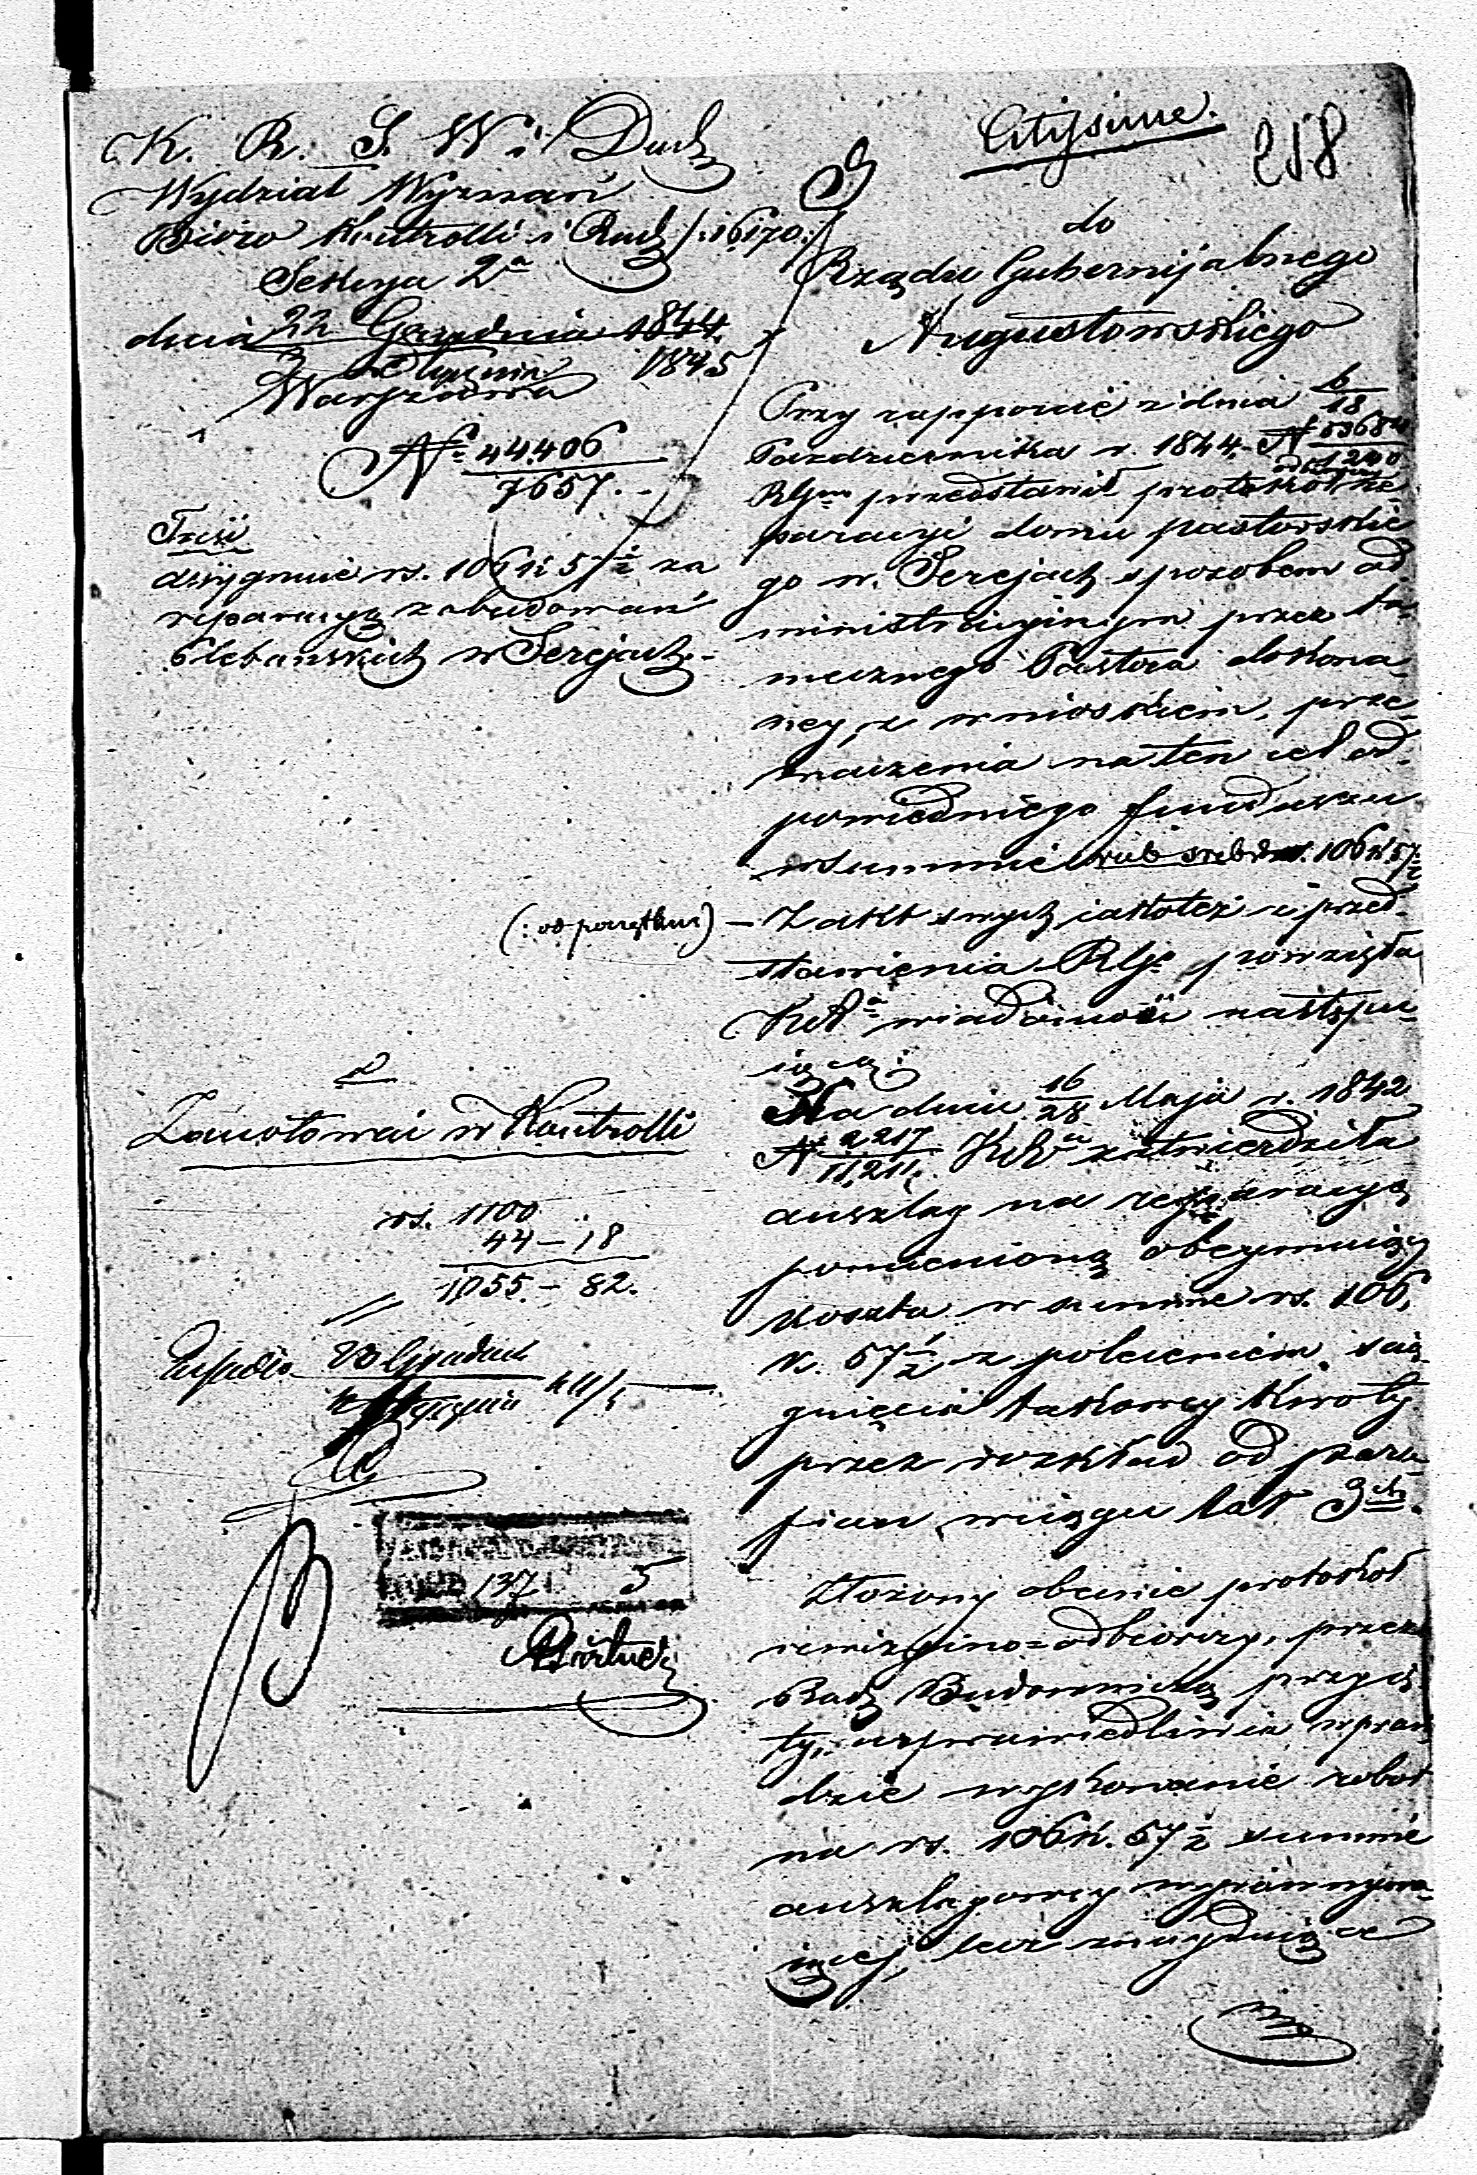 K. R. S. W. i Duch
Wydział Wyznań
Biuro Kontrolli i Rach /:16170:/
Sekcya 2a
dnia 22 Grudnia 1844
3 Stycznia 1845
Warszawa
N 44.406
7657.
Treść
Assygnuie rs. 106 k 57 1/2 za
reparacyą zabudowań
Plebańskich w Serejach.
(: od początku)
Zanotować w Kontrolli
rs. 1100
44 – 18
1,055. – 82.
Grudnia
Stycznia
137 5
Citissime.
218
do
Rządu Gubernijalnego
Augustowskiego
Przy rapporcie z dnia 6/18
Pazdziernika r. 1844 N 53684
1240
Rlny przedstawił protokół re-
paracyi domu pastorskie
go w Serejach sposobem ad-
ministracyjnym przez ta-
mecznego Pastora dokona-
ney, z wnioskiem, prze-
znaczenia na ten cel od-
powiedniego funduszu
w summie rub sreb 106 k 57 1/2
– Z akt swych iakoteż i przed-
stawienia Rlgo powzięła
KRa wiadomość następu-
iącą:
Na dniu 16/28 Maja r. 1842
N 2217/11,211. KRa zatwierdziła
anszlag na reparacyą
pomienioną obeymuiący
koszta w summie rs. 106,
k. 57 1/2 z poleceniem ścią-
gnięcia takowey kwoty
przez rozkład od para-
fian w ciągu lat 3ch.
Złożony obecnie protokół
rewizyino=odbiorczy, przez
Radę Budowniczą przyię-
ty, usprawiedliwia wpraw-
dzie wykonanie robot
na rs. 106 k. 57 1/2 summie
anszlagowey wyrównywa-
iącej, lecz znayduiące